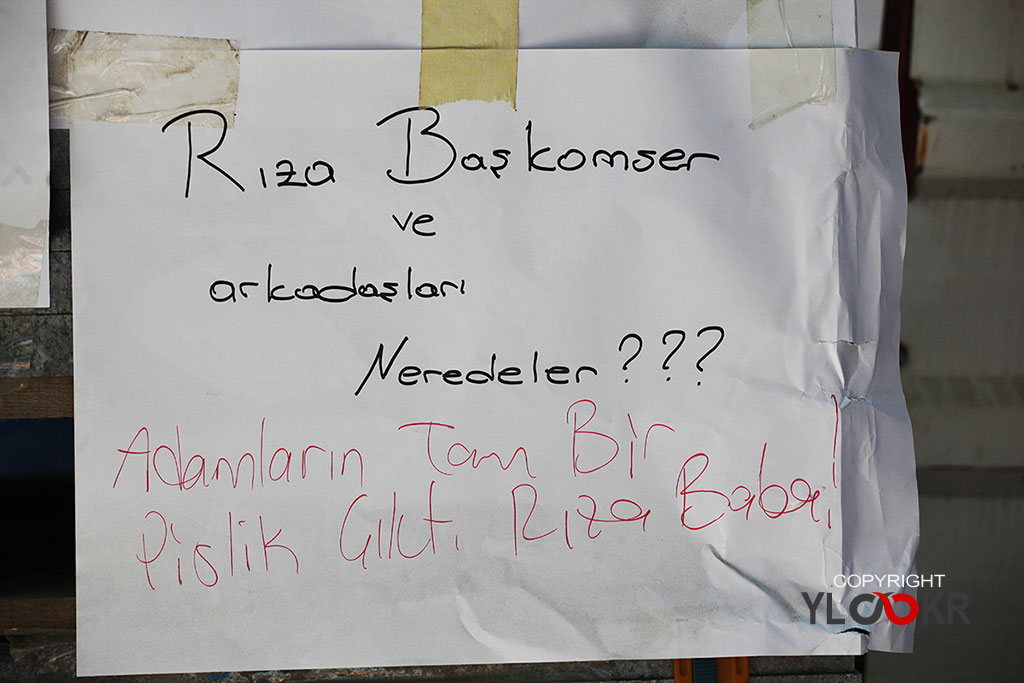 Rıza Başkomser
ve
arkadaşları
Neredeler ???
Adamların Tam Bir
Pislik Çıktı. Rıza Baba!
COPYRIGHT
YLOOKR